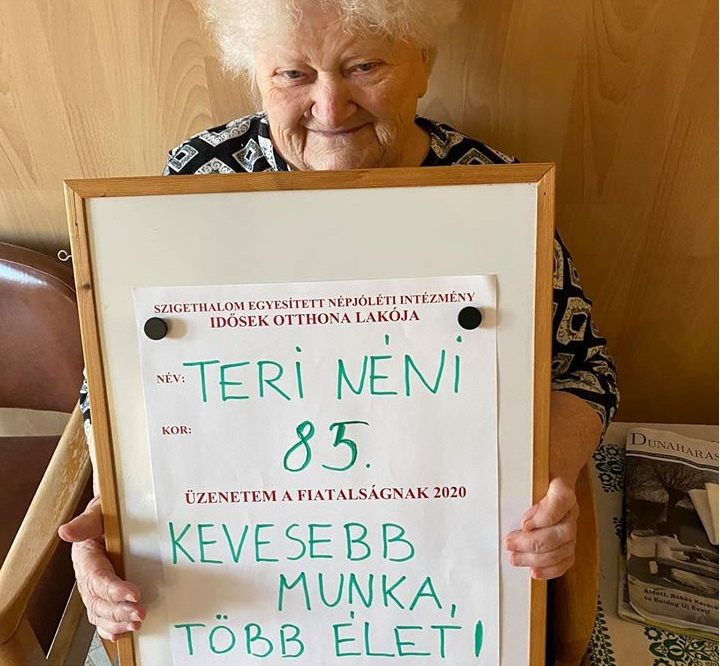 SZIGETHALOM EGYESÍTETT NÉPJÓLÉTI INTÉZMÉNY
IDŐSEK OTTHONA LAKÓJA
NÉV: TERI NÉNI
KOR: 85.
ÜZENETEM A FIATALSÁGNAK 2020
KEVESEBB
MUNKA,
TÖBB ÉLET!
DUNAHARAS
Áldott, Békés Karácso
és Boldog Új Évet!